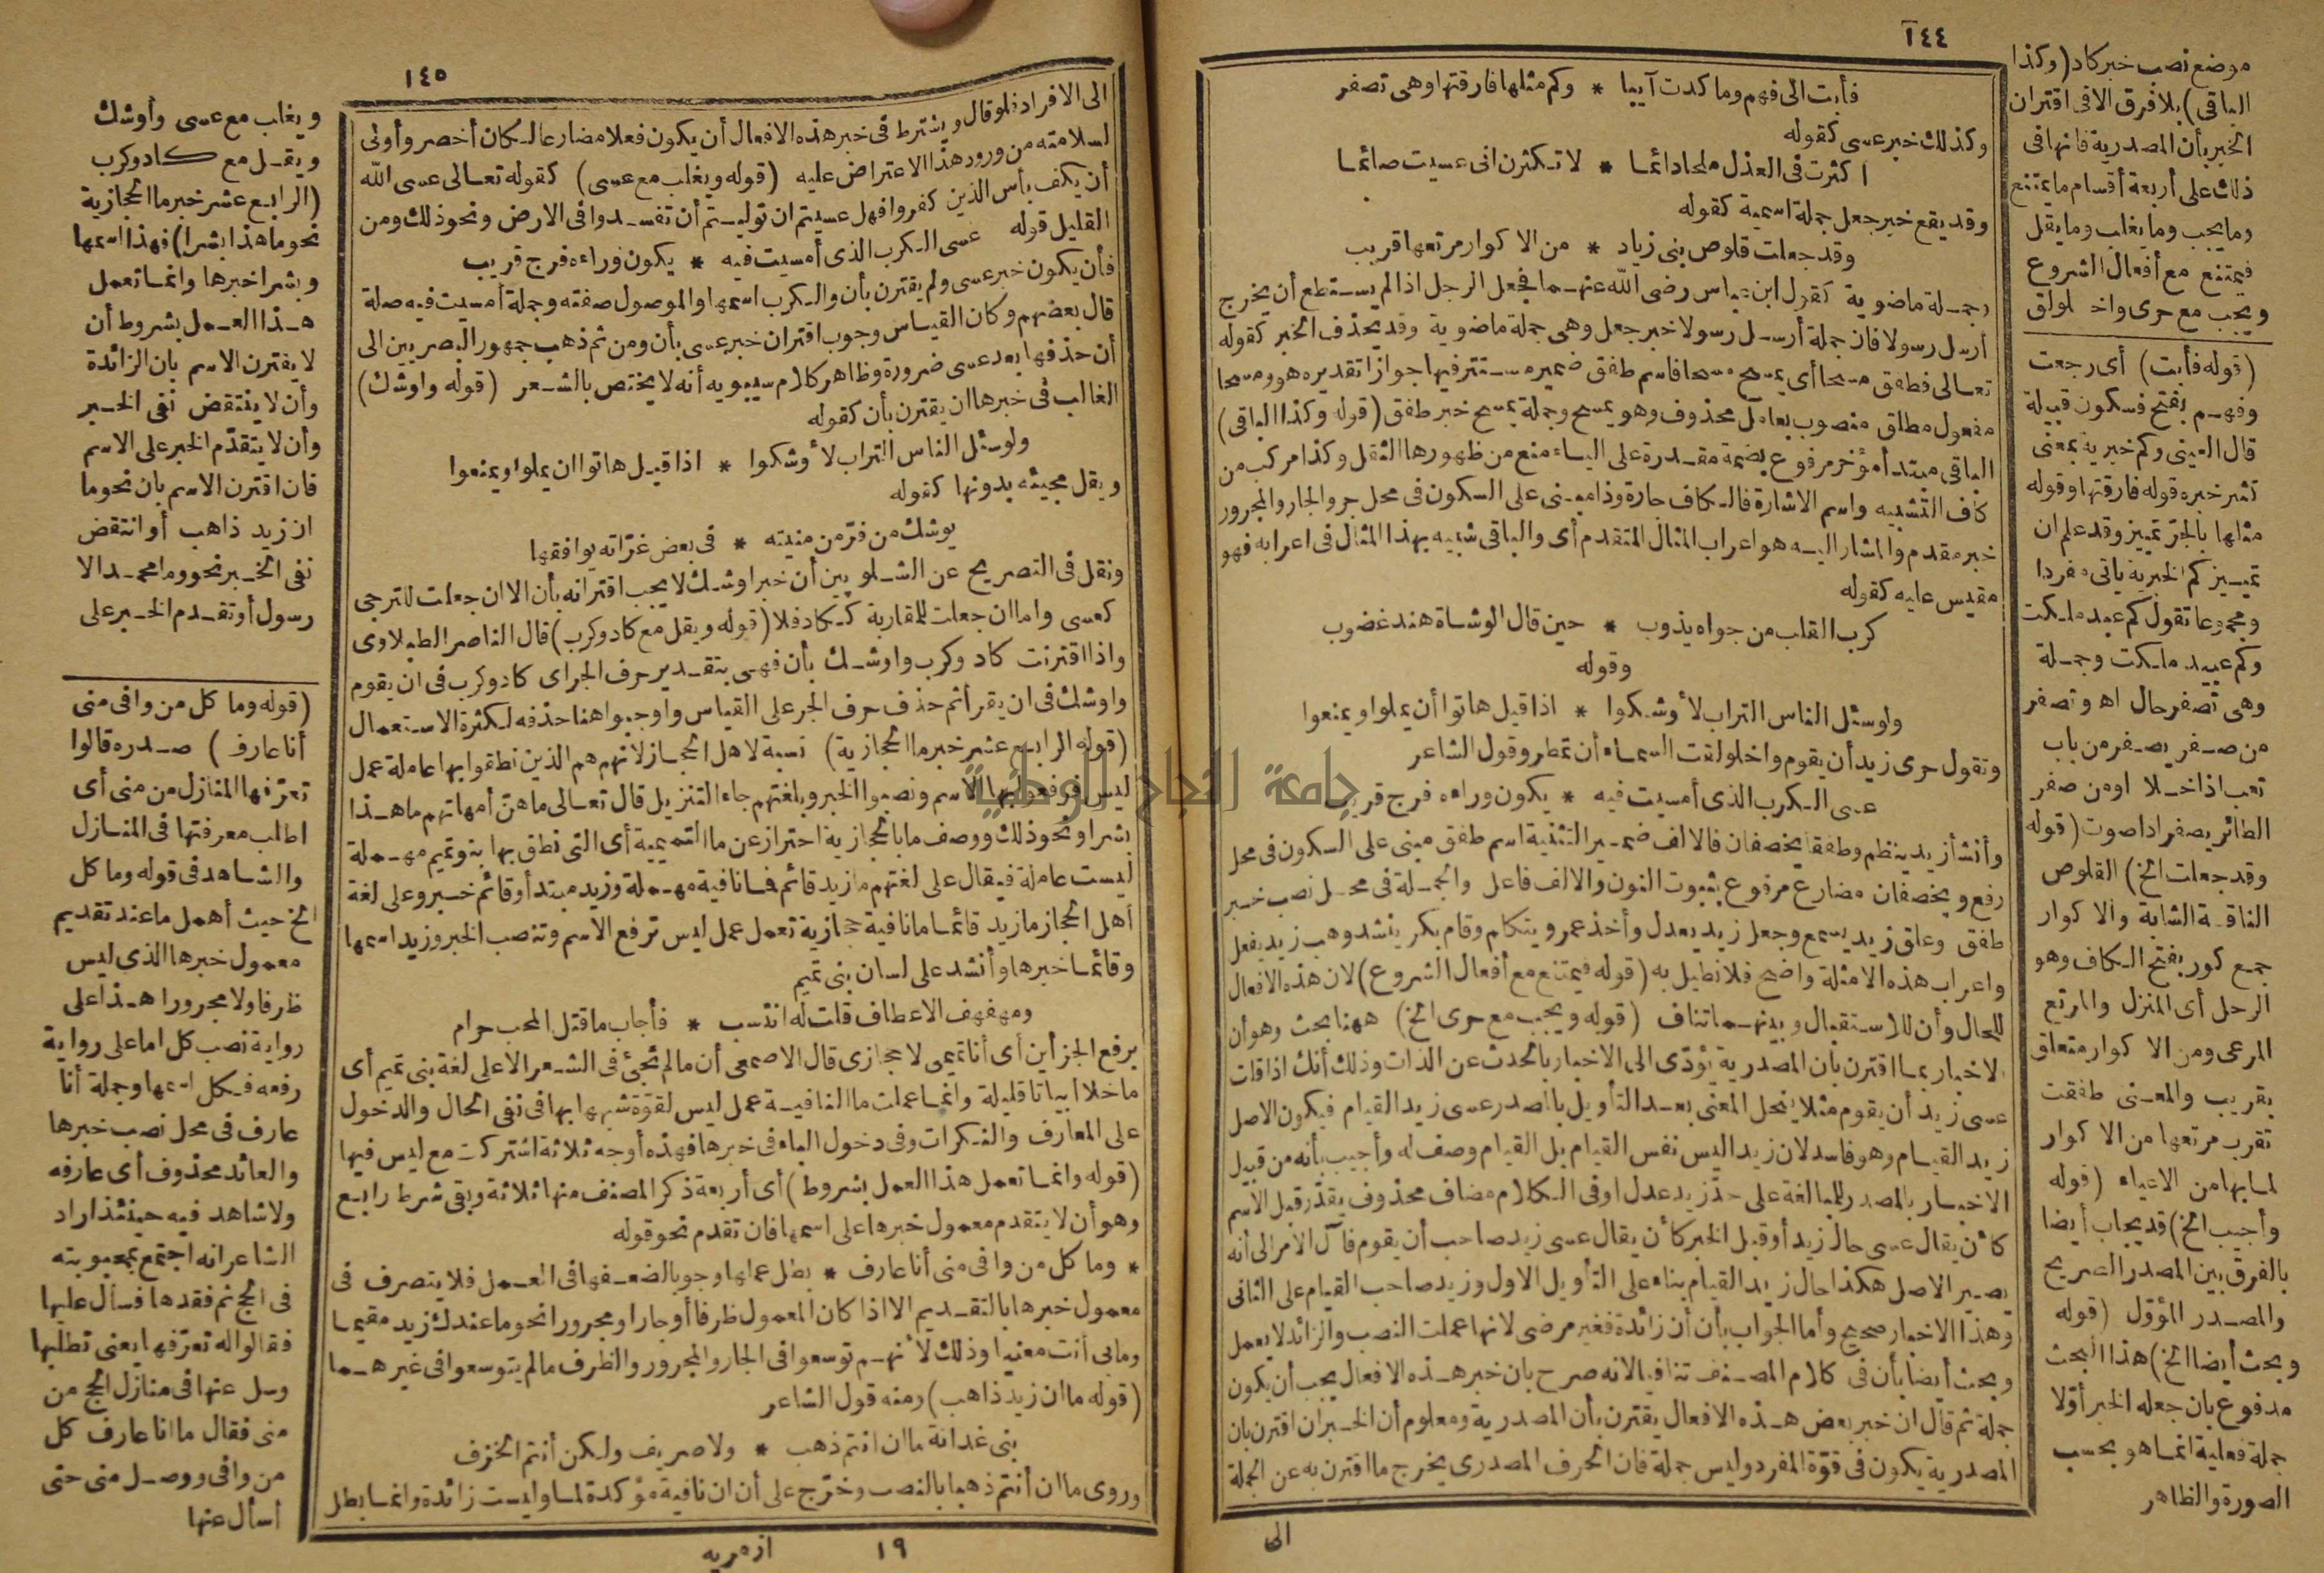 ١٤٤
موضع نصب خبر كاد (وكذا
الباقى) بلا فرق الا فى اقتران
الخبر بأن المصدرية فانها فى
ذلك على أربعة أقسام ما يمتنع
وما يجب وما يغلب وما يقل
فيمتنع مع أفعال الشروع
ويجب مع حرى واخلولق
(قوله فأبت) أى رجعت
وفهم بفتح فسكون قبيلة
قال العينى وكم خبرية بمعنى
كثير خبره قوله فارقتها وقوله
مثلها بالجر تمييز وقد علم ان
تمييز كم الخبرية يأتى مفردا
ومجموعا تقول كم عبد ملكت
وكم عبيد ملكت وجملة
وهى تصفر حال اه وتصفر
من صفر يصفر من باب
تعب اذا خلا او من صفر
الطائر يصفر اذا صوت (قوله
وقد جعلت الخ) القلوص
الناقة الشابة والاكوار
جمع كور بفتح الكاف وهو
الرحل أى المنزل والمرتع
المرعى ومن الاكوار متعلق
بقريب والمعنى طفقت
تقرب مرتعها من الاكوار
لما بها من الاعياء (قوله
وأجيب الخ) قد يجاب أيضا
بالفرق بين المصدر الصريح
والمصدر المؤول (قوله
وبحث أيضا الخ) هذا البحث
مدفوع بان جعله الخبر أولا
جملة فعلية انما هو بحسب
الصورة والظاهر
فأبت الى فهم وما كدت آيبا * وكم مثلها فارقتها وهى تصفر
وكذلك خبر عسى كقوله
اكثرت فى العذل ملحا دائما * لا تكثرن انى عسيت صائما
وقد يقع خبر جعل جملة اسمية كقوله
وقد جعلت قلوص بنى زياد * من الاكوار مرتعها قريب
وجملة ماضوية كقول ابن عباس رضى الله عنهما فجعل الرجل اذا لم يستطع أن يخرج
أرسل رسولا فان جملة أرسل رسولا خبر جعل وهى جملة ماضوية وقد يحذف الخبر كقوله
تعالى فطفق مسحا أى يمسح مسحا فاسم طفق ضمير مستتر فيها جوازا تقديره هو ومسحا
مفعول مطلق منصوب بعامل محذوف وهو يمسح وجملة يمسح خبر طفق (قوله وكذا الباقى)
الباقى مبتدأ مؤخر مرفوع بضمة مقدرة على الياء منع من ظهورها الثقل وكذا مركب من
كاف التشبيه واسم الاشارة فالكاف جارة وذا مبنى على السكون فى محل جر والجار والمجرور
خبر مقدم والمشار اليه هو اعراب المثال المتقدم أى والباقى شبيه بهذا المثال فى اعرابه فهو
مقيس عليه كقوله
كرب القلب من جواه يذوب * حين قال الوشاة هند غضوب
وقوله
ولو سئل الناس التراب لأوشكوا * اذا قيل هاتوا أن يملوا ويمنعوا
وتقول حرى زيد أن يقوم واخلولقت السماء أن تمطر وقول الشاعر
عسى الكرب الذى أمسيت فيه * يكون وراءه فرج قريب
وأنشأ زيد ينظم وطفقا يخصفان فالالف ضمير التثنية اسم طفق مبنى على السكون فى محل
رفع ويخصفان مضارع مرفوع بثبوت النون والالف فاعل والجملة فى محل نصب خبر
طفق وعلق زيد يسمع وجعل زيد يعدل وأخذ عمرو يتكلم وقام بكر ينشد وهب زيد يفعل
واعراب هذه الامثلة واضح فلا نطيل به (قوله فيمتنع مع أفعال الشروع) لان هذه الافعال
للحال وأن للاستقبال وبينهما تناف (قوله ويجب مع حرى الخ) ههنا بحث وهو أن
الاخبار بما اقترن بأن المصدرية يؤدى الى الاخبار بالحدث عن الذات وذلك أنك اذا قلت
عسى زيد أن يقوم مثلا ينحل المعنى بعد التأويل بالمصدر عسى زيد القيام فيكون الاصل
زيد القيام وهو فاسد لان زيدا ليس نفس القيام بل القيام وصف له وأجيب بأنه من قبيل
الاخبار بالمصدر للمبالغة على حد زيد عدل او فى الكلام مضاف محذوف يقدر قبل الاسم
كأن يقال عسى حال زيد أو قبل الخبر كأن يقال عسى زيد صاحب أن يقوم فآل الامر الى أنه
يصير الاصل هكذا حال زيد القيام بناء على التأويل الاول وزيد صاحب القيام على الثانى
وهذا الاخبار صحيح وأما الجواب بأن أن زائدة فغير مرضى لانها عملت النصب والزائد لا يعمل
وبحث أيضا بأن فى كلام المصنف تنافيا لانه صرح بان خبر هذه الافعال يجب أن يكون
جملة ثم قال ان خبر بعض هذه الافعال يقترن بأن المصدرية ومعلوم أن الخبر ان اقترن بان
المصدرية يكون فى قوة المفرد وليس جملة فان الحرف المصدرى يخرج ما اقترن به عن الجملة
الى
١٤٥
الى الافراد فلو قال ويشترط فى خبر هذه الافعال أن يكون فعلا مضارعا لكان أخصر وأولى
لسلامته من ورود هذا الاعتراض عليه (قوله ويغلب مع عسى) كقوله تعالى عسى الله
أن يكف بأس الذين كفروا فهل عسيتم ان توليتم أن تفسدوا فى الارض ونحو ذلك ومن
القليل قوله عسى الكرب الذى أمسيت فيه * يكون وراءه فرج قريب
فأن يكون خبر عسى ولم يقترن بأن والكرب اسمها والموصول صفته وجملة أمسيت فيه صلة
قال بعضهم وكان القياس وجوب اقتران خبر عسى بأن ومن ثم ذهب جمهور البصريين الى
أن حذفها بعد عسى ضرورة وظاهر كلام سيبويه أنه لا يختص بالشعر (قوله واوشك)
الغالب فى خبرها ان يقترن بأن كقوله
ولو سئل الناس التراب لأوشكوا * اذا قيل هاتوا ان يملوا ويمنعوا
ويقل مجيئه بدونها كقوله
يوشك من فر من منيته * فى بعض غراته يوافقها
ونقل فى التصريح عن الشلوبين أن خبر اوشك لا يجب اقترانه بأن الا ان جعلت للترجى
كعسى واما ان جعلت للمقاربة ككاد فلا (قوله ويقل مع كاد وكرب) قال الناصر الطبلاوى
واذا اقترنت كاد وكرب واوشك بأن فهى بتقدير حرف الجر اى كاد وكرب فى ان يقوم
واوشك فى ان يقرأ ثم حذف حرف الجر على القياس واوجبوا هنا حذفه لكثرة الاستعمال
(قوله الرابع عشر خبر ما الحجازية) نسبة لاهل الحجاز لانهم هم الذين نطقوا بها عاملة عمل
ليس فرفعوا بها الاسم ونصبوا الخبر وبلغتهم جاء التنزيل قال تعالى ما هن أمهاتهم ما هذا
بشرا ونحو ذلك ووصف ما بالحجازية احتراز عن ما التميمية أى التى نطق بها بنو تميم مهملة
ليست عاملة فيقال على لغتهم ما زيد قائم فما نافية مهملة وزيد مبتدأ وقائم خبر وعلى لغة
أهل الحجاز ما زيد قائما ما نافية حجازية تعمل عمل ليس ترفع الاسم وتنصب الخبر وزيد اسمها
وقائما خبرها وأنشد على لسان بنى تميم
ومهفهف الاعطاف قلت له انتسب * فأجاب ما قتل المحب حرام
برفع الجزأين أى أنا تميمى لا حجازى قال الاصمعى أن ما لم تجئ فى الشعر الا على لغة بنى تميم أى
ما خلا أبياتا قليلة وانما عملت ما النافية عمل ليس لقوة شبهها بها فى نفى الحال والدخول
على المعارف والنكرات وفى دخول الباء فى خبرها فهذه أوجه ثلاثة اشتركت مع ليس فيها
(قوله وانما تعمل هذا العمل بشروط) أى أربعة ذكر المصنف منها ثلاثة وبقى شرط رابع
وهو أن لا يتقدم معمول خبرها على اسمها فان تقدم نحو قوله
* وما كل من وافى منى أنا عارف * بطل عملها وجوبا لضعفها فى العمل فلا يتصرف فى
معمول خبرها بالتقديم الا اذا كان المعمول ظرفا أو جارا ومجرورا نحو ما عندك زيد مقيما
وما بى أنت معنيا وذلك لأنهم توسعوا فى الجار والمجرور والظرف ما لم يتوسعوا فى غيرهما
(قوله ما ان زيد ذاهب) ومنه قول الشاعر
بنى غدانة ما ان انتم ذهب * ولا صريف ولكن أنتم الخزف
وروى ما ان أنتم ذهبا بالنصب وخرج على أن ان نافية مؤكدة لما وليست زائدة وانما بطل
١٩
ازهريه
ويغلب مع عسى وأوشك
ويقل مع كاد وكرب
(الرابع عشر خبر ما الحجازية
نحو ما هذا بشرا) فهذا اسمها
وبشرا خبرها وانما تعمل
هذا العمل بشروط أن
لا يقترن الاسم بان الزائدة
وأن لا ينتقض نفى الخبر
وأن لا يتقدم الخبر على الاسم
فان اقترن الاسم بان نحو ما
ان زيد ذاهب أو انتقض
نفى الخبر نحو وما محمد الا
رسول أو تقدم الخبر على
(قوله وما كل من وافى منى
أنا عارف) صدره قالوا
تعرفها المنازل من منى أى
اطلب معرفتها فى المنازل
والشاهد فى قوله وما كل
الخ حيث أهمل ما عند تقديم
معمول خبرها الذى ليس
ظرفا ولا مجرورا هذا على
رواية نصب كل اما على رواية
رفعه فكل اسمها وجملة أنا
عارف فى محل نصب خبرها
والعائد محذوف أى عارفه
ولا شاهد فيه حينئذ اراد
الشاعر انه اجتمع بمحبوبته
فى الحج ثم فقدها فسأل عليها
فقالوا له تعرفها يعنى تطلبها
وسل عنها فى منازل الحج من
منى فقال ما انا عارف كل
من وافى ووصل منى حتى
أسأل عنها
جامعة النجاح الوطنية